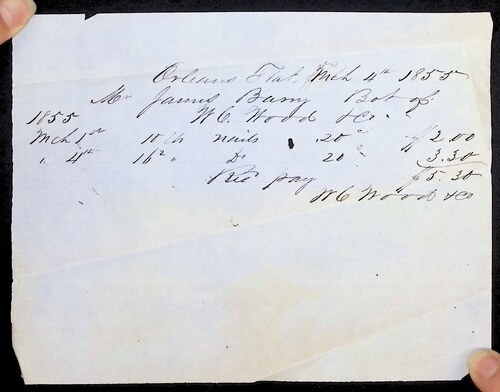 Orleans Flat, Mch 4th 1855
Mr James Barry Bot of
1855 W. C. Wood & Co.
Mch 1st 10 lb nails .20c $2.00
" 4th 16½ " Do 20c 3.30
Recd pay $5.30
W C Wood & Co